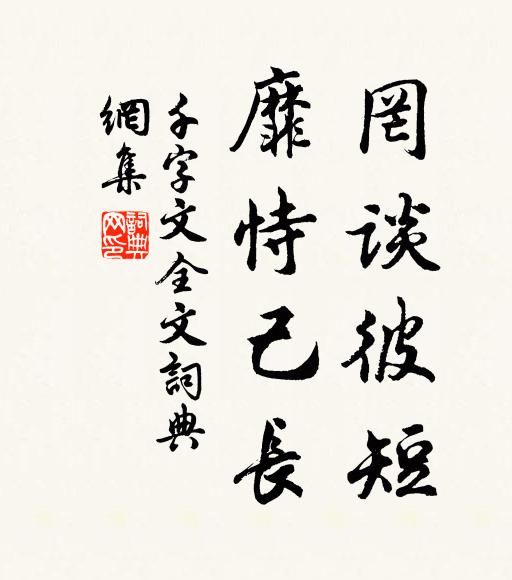 罔談彼短
靡恃己長
千字文全文詞典
網集
詞典
网印